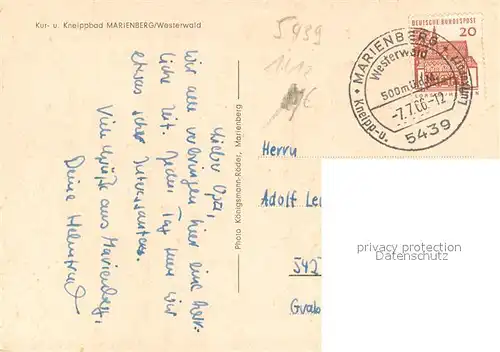 Kur- u. Kneippbad MARIENBERG/Westerwald
5439
Lieber Opa,
wir verbringen hier eine herr-
liche Zeit. Jeden Tag wir
etwas sehr Interessantes.
Viele Grüße aus Marienberg,
Deine
Photo Königsmann-Röder, Marienberg
DEUTSCHE BUNDESPOST
20
MARIENBERG
Westerwald
500m
-7.7.66.-12
Kneipp-u.
Luftkurort
5439
Herrn
Adolf Le
542
Grab
privacy protection
watermark